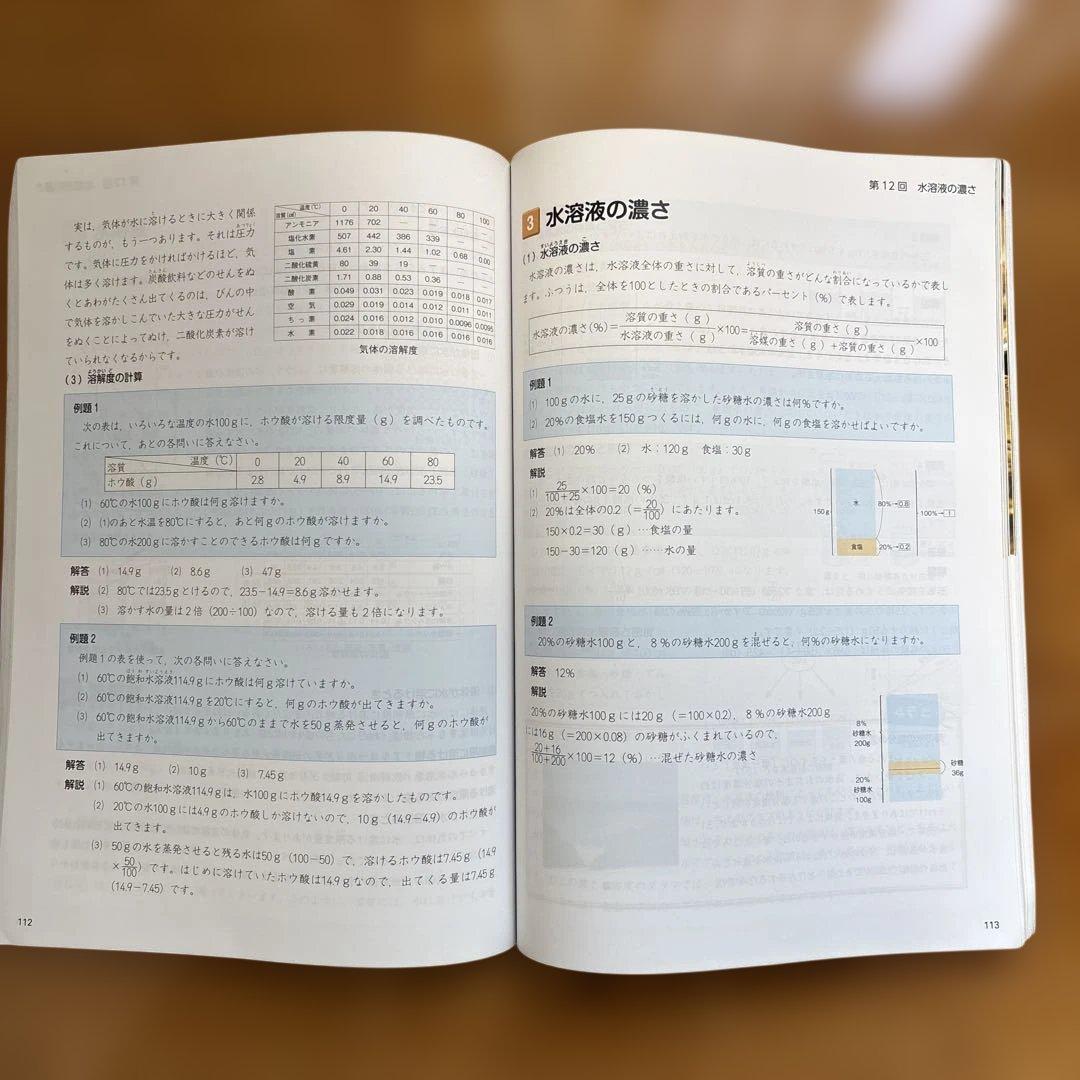 実は，気体が水に溶けるときに大きく関係
するものが，もう一つあります。それは圧力
です。気体に圧力をかければかけるほど，気
体は多く溶けます。炭酸飲料などのせんをぬ
くとあわがたくさん出てくるのは，びんの中
で気体を溶かしこんでいた大きな圧力がせん
をぬくことによってぬけ，二酸化炭素が溶け
ていられなくなるからです。
溶質(㎤) 温度(℃) 0 20 40 60 80 100
アンモニア 1176 702 — — — —
塩化水素 507 442 386 339 — —
塩素 4.61 2.30 1.44 1.02 0.68 0.00
二酸化硫黄 80 39 19 — — —
二酸化炭素 1.71 0.88 0.53 0.36 — —
酸素 0.049 0.031 0.023 0.019 0.018 0.017
空気 0.029 0.019 0.014 0.012 0.011 0.011
ちっ素 0.024 0.016 0.012 0.010 0.0096 0.0095
水素 0.022 0.018 0.016 0.016 0.016 0.016
気体の溶解度
(3) 溶解度の計算
例題1
次の表は，いろいろな温度の水100gに，ホウ酸が溶ける限度量（g）を調べたものです。
これについて，あとの各問いに答えなさい。
溶質 温度（℃） 0 20 40 60 80
ホウ酸（g） 2.8 4.9 8.9 14.9 23.5
(1) 60℃の水100gにホウ酸は何g溶けますか。
(2) (1)のあと水温を80℃にすると，あと何gのホウ酸が溶けますか。
(3) 80℃の水200gに溶かすことのできるホウ酸は何gですか。
解答 (1) 14.9g (2) 8.6g (3) 47g
解説 (2) 80℃では23.5gとけるので，23.5−14.9=8.6g溶かせます。
(3) 溶かす水の量は2倍（200÷100）なので，溶ける量も2倍になります。
例題2
例題1の表を使って，次の各問いに答えなさい。
(1) 60℃の飽和水溶液114.9gにホウ酸は何g溶けていますか。
(2) 60℃の飽和水溶液114.9gを20℃にすると，何gのホウ酸が出てきますか。
(3) 60℃の飽和水溶液114.9gから60℃のままで水を50g蒸発させると，何gのホウ酸が
出てきますか。
解答 (1) 14.9g (2) 10g (3) 7.45g
解説 (1) 60℃の飽和水溶液114.9gは，水100gにホウ酸14.9gを溶かしたものです。
(2) 20℃の水100gには4.9gのホウ酸しか溶けないので，10g（14.9−4.9）のホウ酸が
出てきます。
(3) 50gの水を蒸発させると残る水は50g（100−50）で，溶けるホウ酸は7.45g（14.9
×50/100）です。はじめに溶けていたホウ酸は14.9gなので，出てくる量は7.45g
（14.9−7.45）です。
112
第12回 水溶液の濃さ
3 水溶液の濃さ
(1) 水溶液の濃さ
水溶液の濃さは，水溶液全体の重さに対して，溶質の重さがどんな割合になっているかで表し
ます。ふつうは，全体を100としたときの割合であるパーセント（%）で表します。
水溶液の濃さ(%)=溶質の重さ（g）/水溶液の重さ（g）×100=溶質の重さ（g）/溶媒の重さ（g）+溶質の重さ（g）×100
例題1
(1) 100gの水に，25gの砂糖を溶かした砂糖水の濃さは何%ですか。
(2) 20%の食塩水を150gつくるには，何gの水に，何gの食塩を溶かせばよいですか。
解答 (1) 20% (2) 水：120g 食塩：30g
解説
(1) 25/100+25×100=20（%）
(2) 20%は全体の0.2（=20/100）にあたります。
150×0.2=30（g）…食塩の量
150−30=120（g）……水の量
150g
水
食塩
80%→0.8
20%→0.2
100%→1
例題2
20%の砂糖水100gと，8%の砂糖水200gを混ぜると，何%の砂糖水になりますか。
解答 12%
解説
20%の砂糖水100gには20g（=100×0.2），8%の砂糖水200g
には16g（=200×0.08）の砂糖がふくまれているので，
20+16/100+200×100=12（%）…混ぜた砂糖水の濃さ
8%
砂糖水
200g
20%
砂糖水
100g
砂糖
36g
113